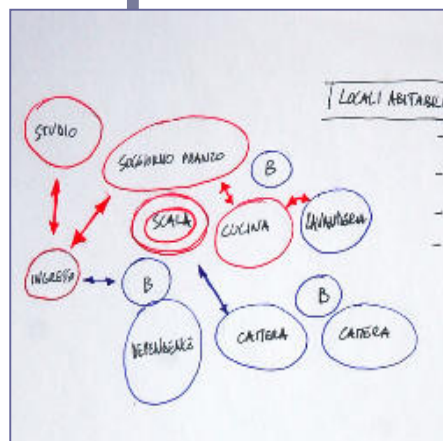 LOCALI ABITABILI
STUDIO
SOGGIORNO PRANZO
B
SCALA
CUCINA
LAVANDERIA
INGRESSO
B
B
DEPENDENCE
CAMERA
CAMERA